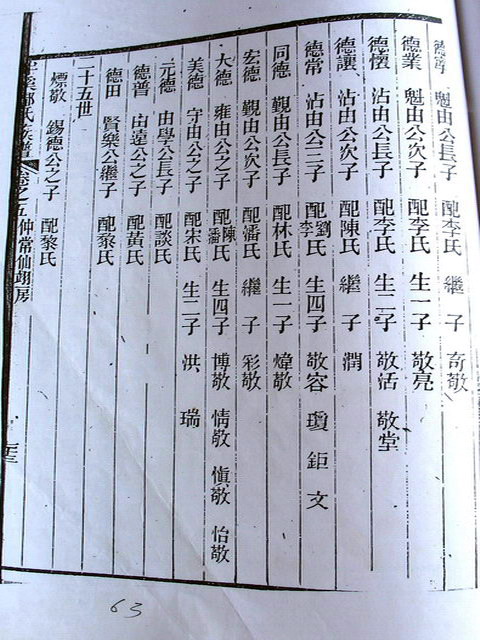 德 魁由公長子 配李氏 繼子 奇敬
德業 魁由公次子 配李氏 生一子 敬亮
德懷 沾由公長子 配李氏 生二子 敬活 敬堂
德讓 沾由公次子 配陳氏 繼子 潤
德常 沾由公三子 配劉李氏 生四子 敬容 瓊 鉅 文
同德 觐由公長子 配林氏 生一子 煒敬
宏德 觐由公次子 配潘氏 繼子 彩敬
大德 雍由公之子 配陳潘氏 生四子 博敬 情敬 慎敬 怡敬
美德 守由公之子 配宋氏 生二子 洪 瑞
元德 由學公長子 配談氏
德普 由達公之子 配黄氏
德田 賢樂公繼子 配黎氏
二十五世
熛敬 錫德公之子 配黎氏
氏族譜 卷之五 仲常仙翊房
63